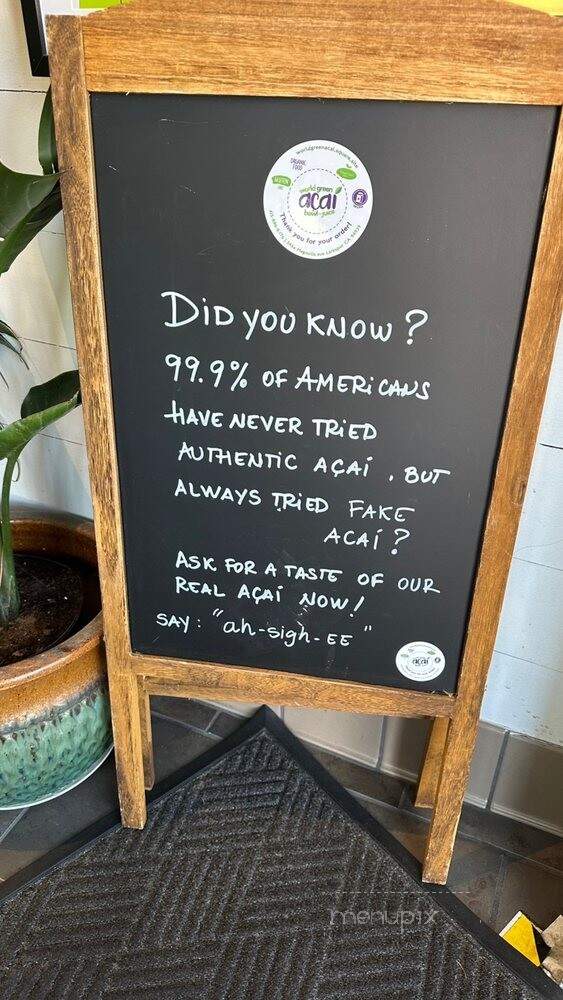 worldgreenacai.square.site
ORGANIC FOOD
world green
açaí
bowl-juice
Thank you for your order!
Magnolia ave Larkspur CA, 94939
DiD YOU KNOW?
99.9% OF AMERiCANS
HAVE NEVER TRiED
AUTHENTIC AÇAÍ . BUT
ALWAYS TRiED FAKE
ACAÍ?
ASK FOR A TASTE OF OUR
REAL AÇAÍ NOW!
SAY: "ah-sigh-EE"
açaí
menupix